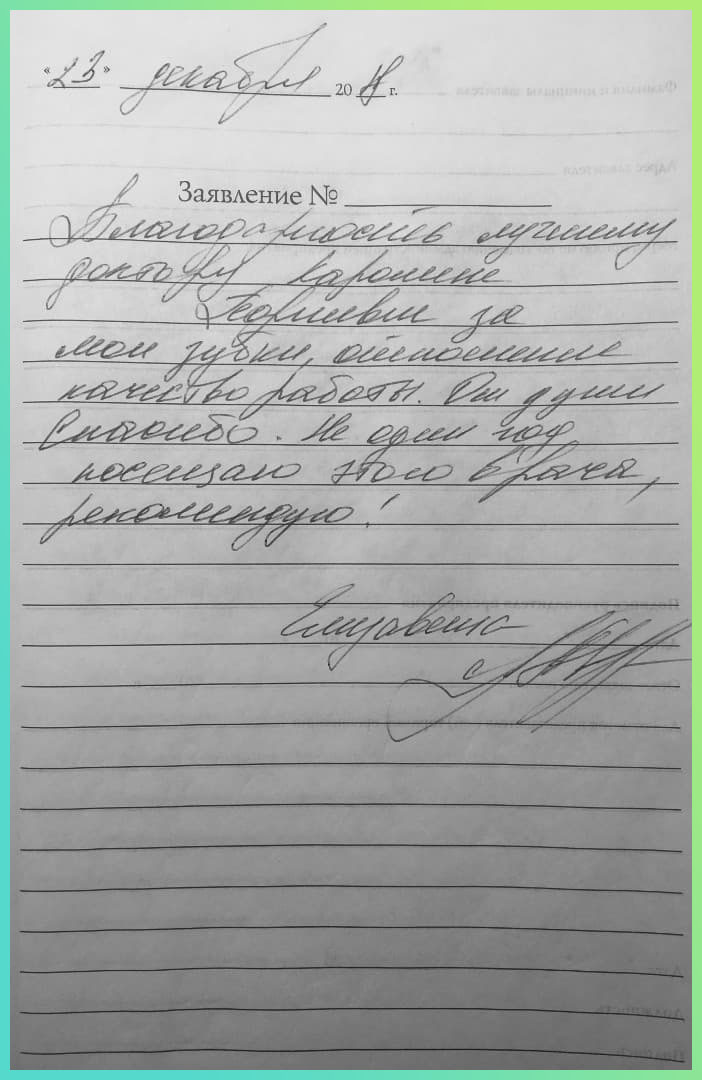 «23» декабря 2018 г.
Заявление №
Благодарность лучшему
доктору Каролине
за
мои зубки, отношение
качество работы. От души
Спасибо. Не один год
посещаю этого врача,
рекомендую!
Елизавета